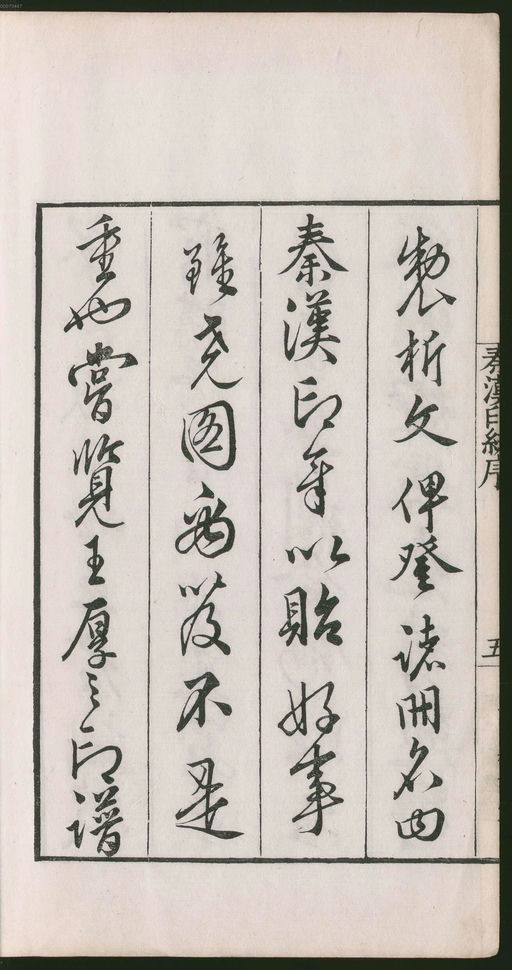 製析文俾登諸冊名曰
秦漢印章以貽好事
雖克図為以及不是
重也嘗覽王厚之印譜
秦漢印統序
五
00079447